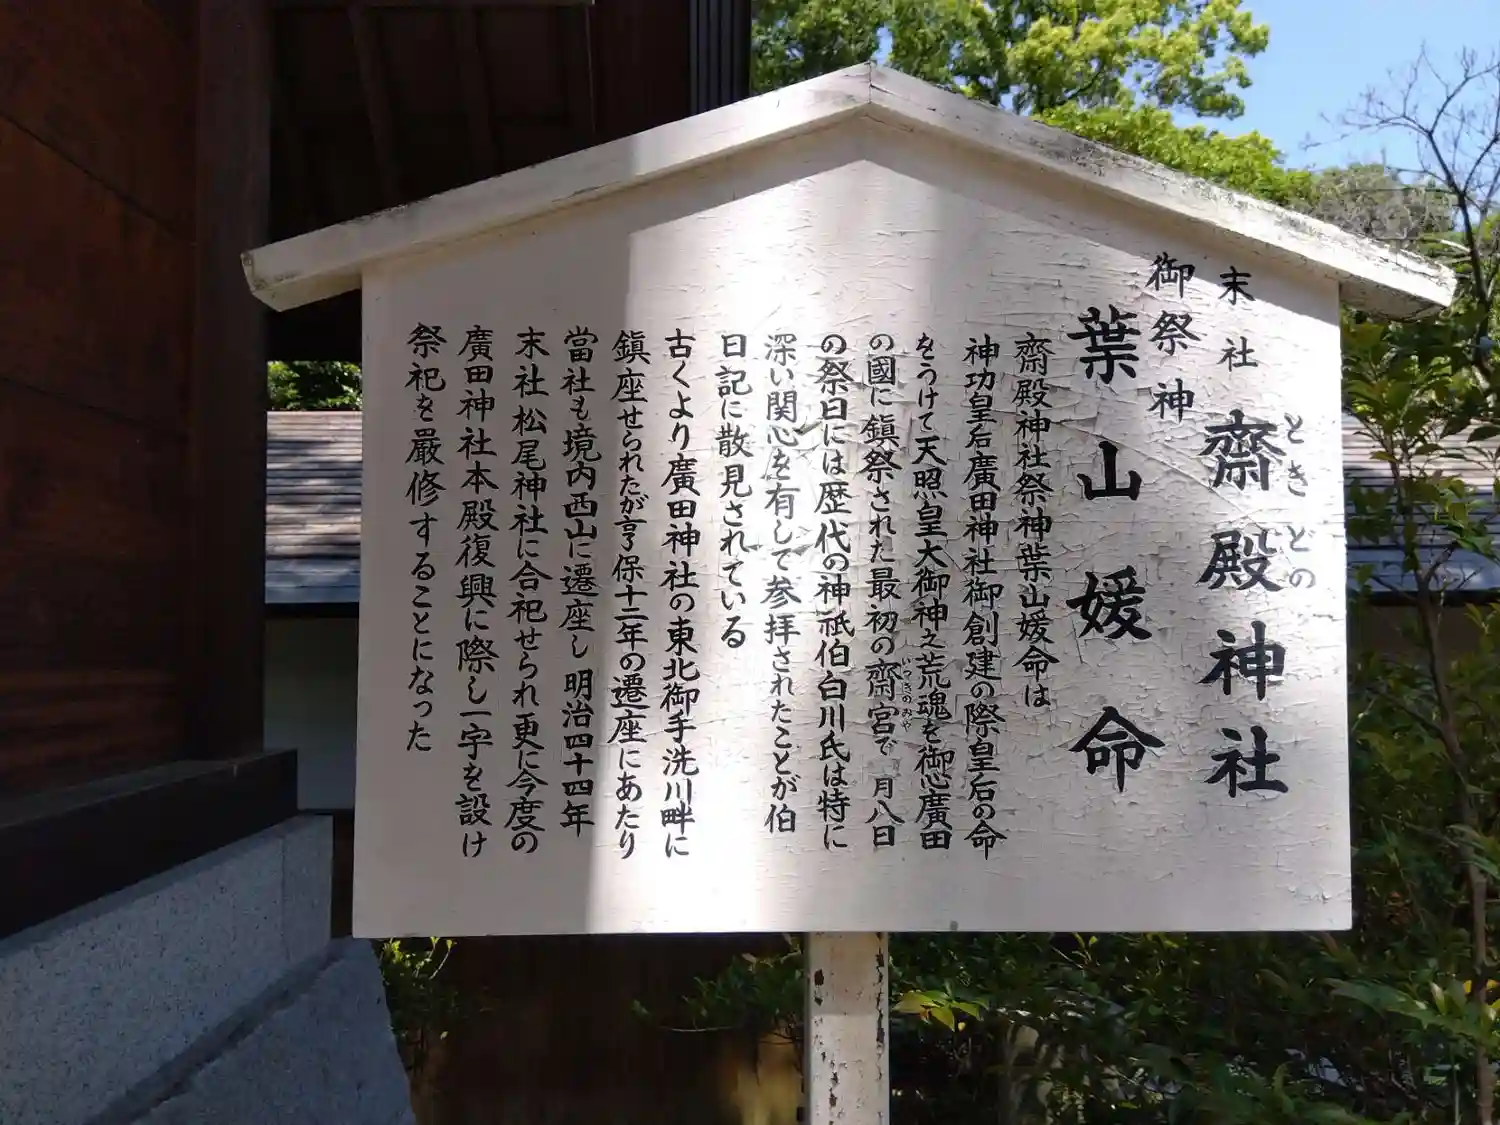 末社 齋殿神社
ときどの
御祭神
葉山媛命
齋殿神社祭神葉山媛命は
神功皇后廣田神社御創建の際皇后の命
をうけて天照皇大御神之荒魂を御心廣田
の國に鎮祭された最初の齋宮で 月八日
いつきのみや
の祭日には歴代の神祇伯白川氏は特に
深い関心を有して参拝されたことが伯
日記に散見されている
古くより廣田神社の東北御手洗川畔に
鎮座せられたが享保十二年の遷座にあたり
當社も境内西山に遷座し 明治四十四年
末社松尾神社に合祀せられ更に今度の
廣田神社本殿復興に際し一宇を設け
祭祀を嚴修することになった